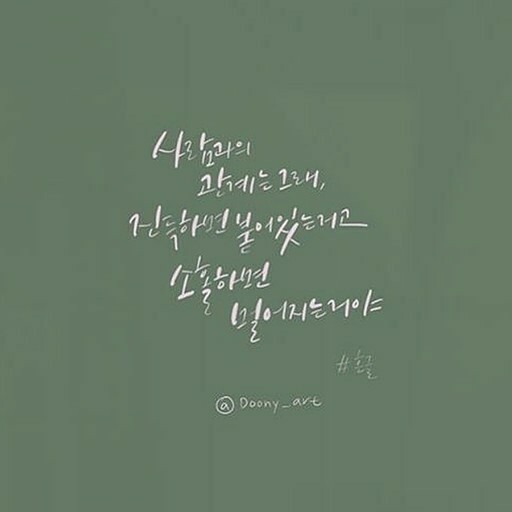 사람과의
관계는 그래,
진득하면 붙어있는거고
소홀하면
멀어지는거야
#흔글
@Doony_art